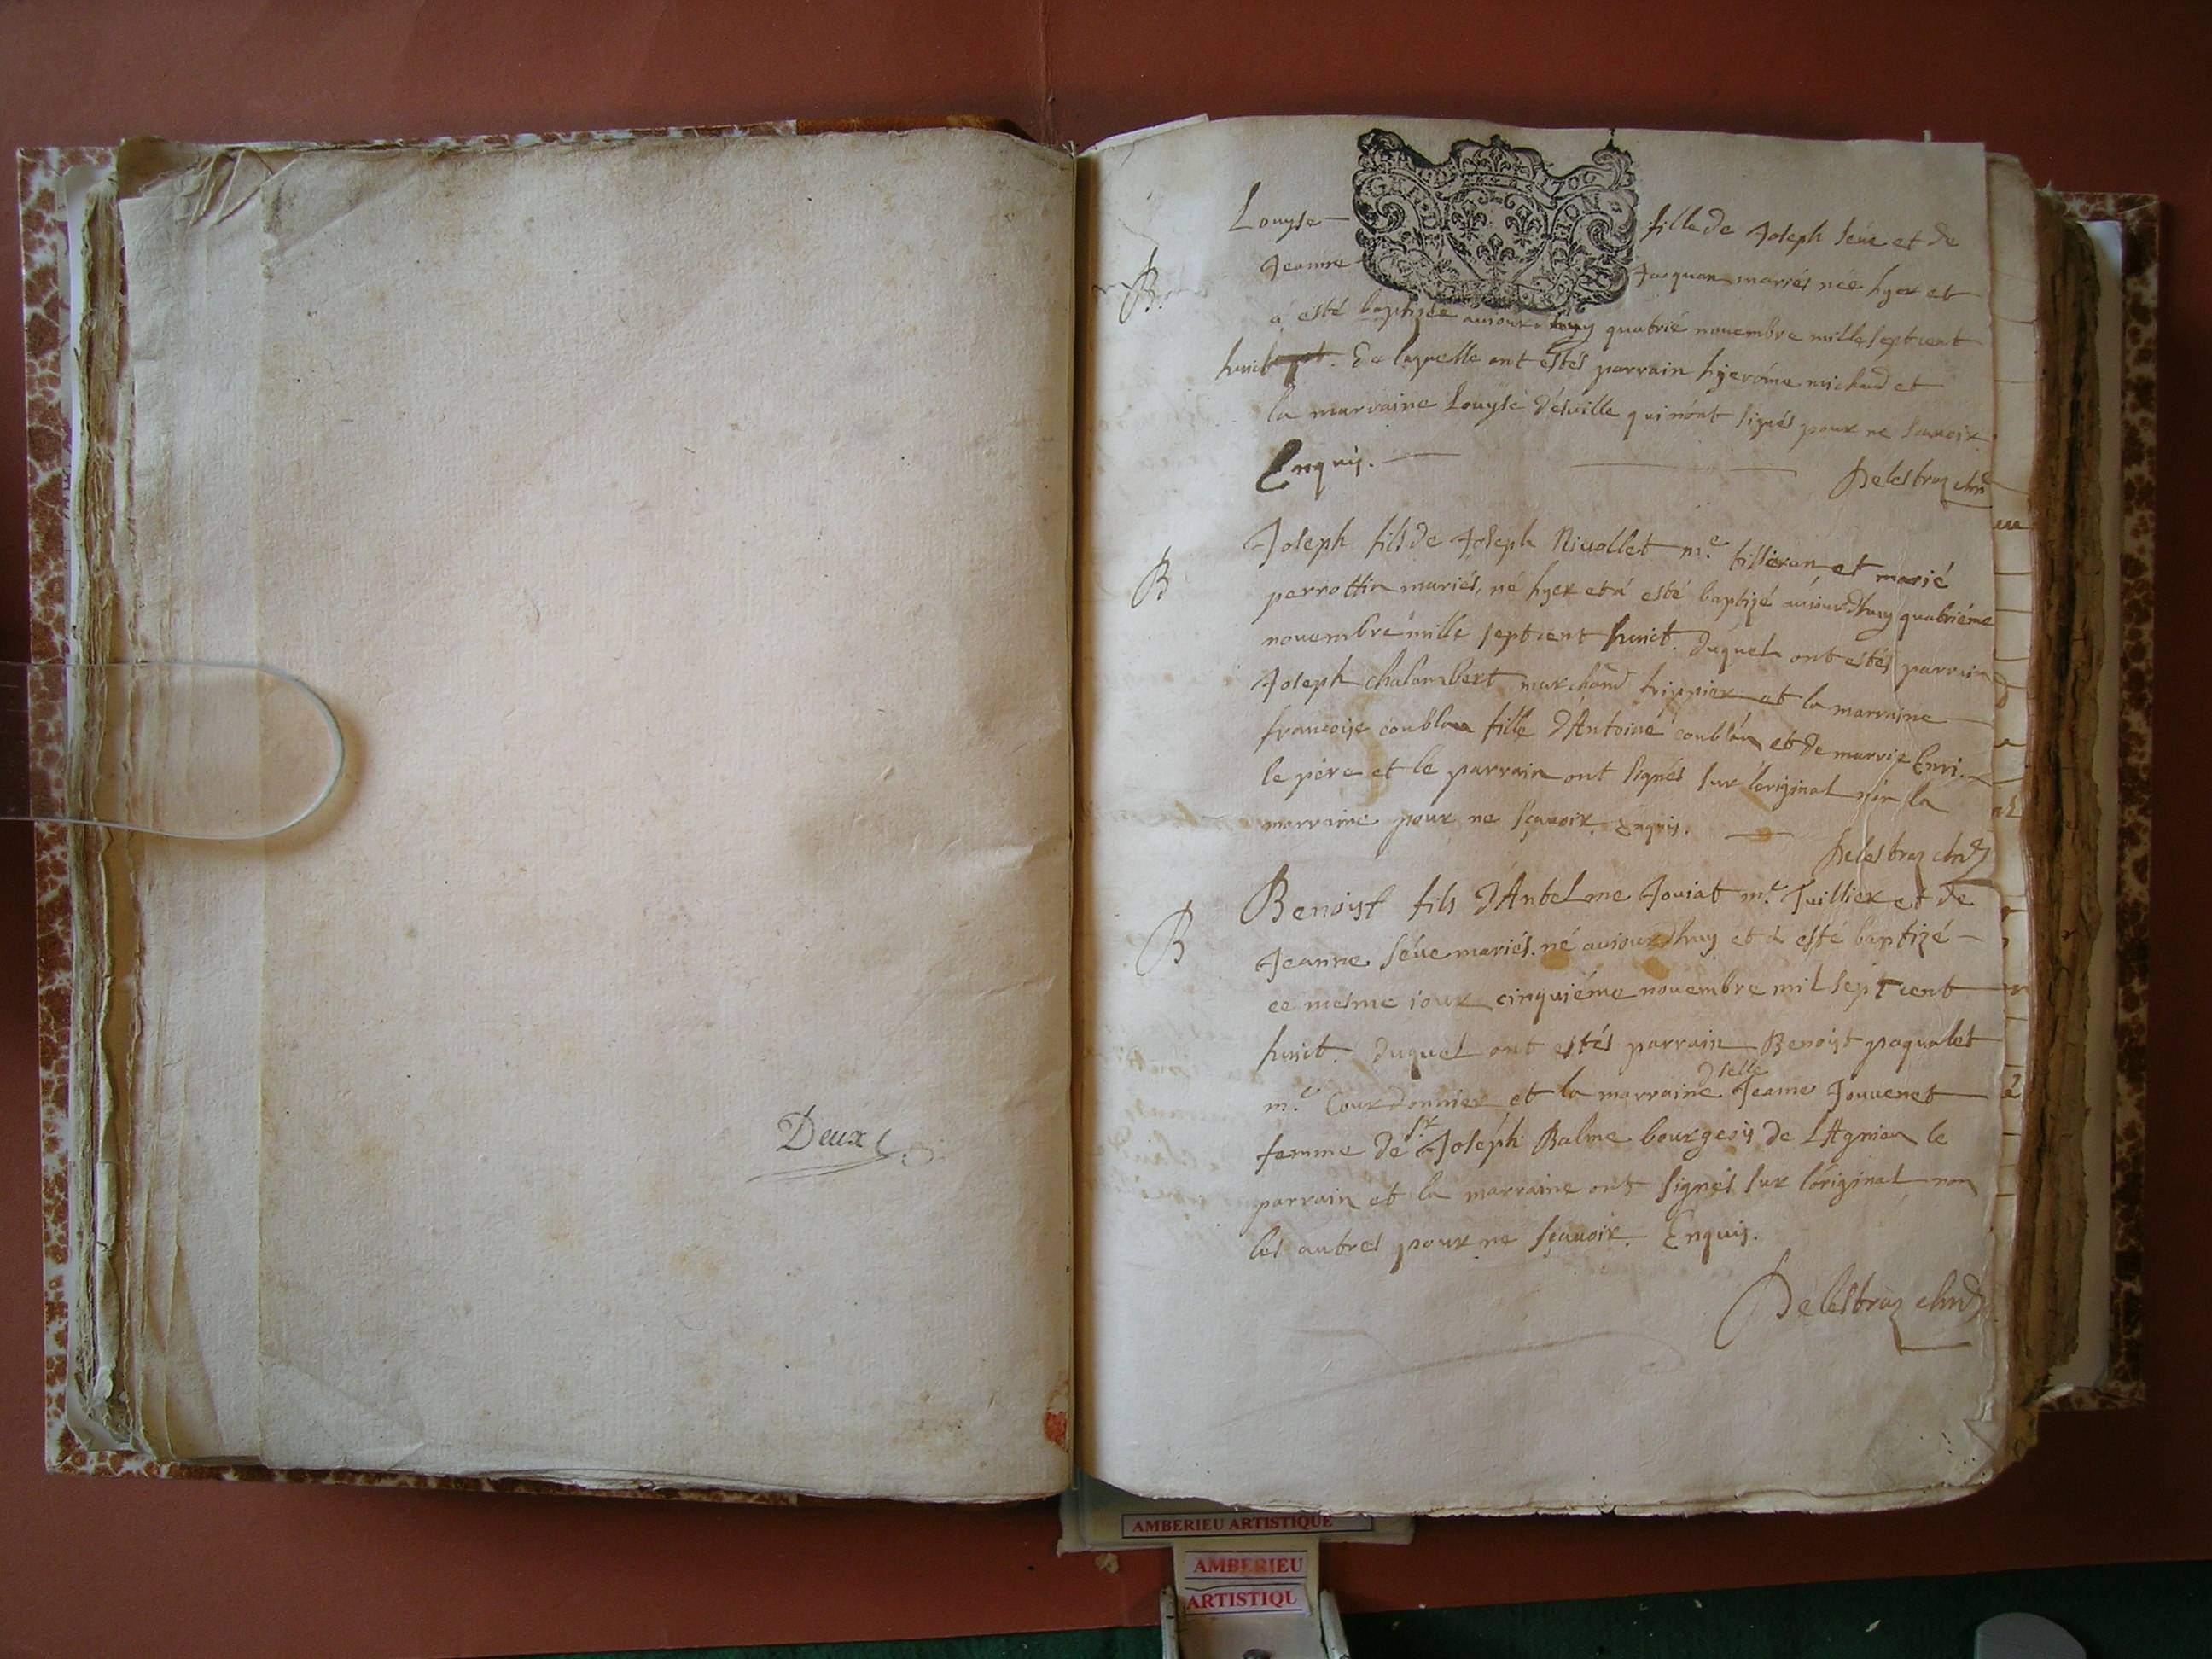 Deux
GENERALITE
Louyse fille de Joseph seve et de
Jeanne Jacquan mariés née hyer et
a esté baptizée aujourd'huy quatrié novembre mille septcent
huict. De laquelle ont estés parrain hyeróme michaud et
la marraine Louyse d'éville qui n'ont signés pour ne scavoir
Enquis.
Delestraz
B
Joseph fils de Joseph Nivollet m.e tisseran et marié
perrottin mariés, né hyer et a esté baptizé aujourd'huy quatriéme
novembre mille septcent huict. Duquel ont estés parrain
Joseph chalambert marchand frippier et la marraine
francoise coublan fille d'Antoine coublan et de marrie Enri.
le pére et le parrain ont signés sur l'original non la
marraine pour ne sçavoir. Enquis.
Delestraz
B
Benoist fils d'Antelme Joviat m.e Tuillier et de
Jeanne séve mariés. né aujourd'huy et a esté baptizé
ce mesme jour cinquiéme novembre mil sept cent
huict. Duquel ont estés parrain Benoist paqualet
m.e Courdonnier et la marraine dselle Jeanne Jouvenet
femme de Sr. Joseph Balme bourgeois de Lagnieu le
parrain et la marraine ont signés sur l'original non
les autres pour ne sçavoir. Enquis.
Delestraz
B
AMBERIEU ARTISTIQUE
AMBERIEU
ARTISTIQU